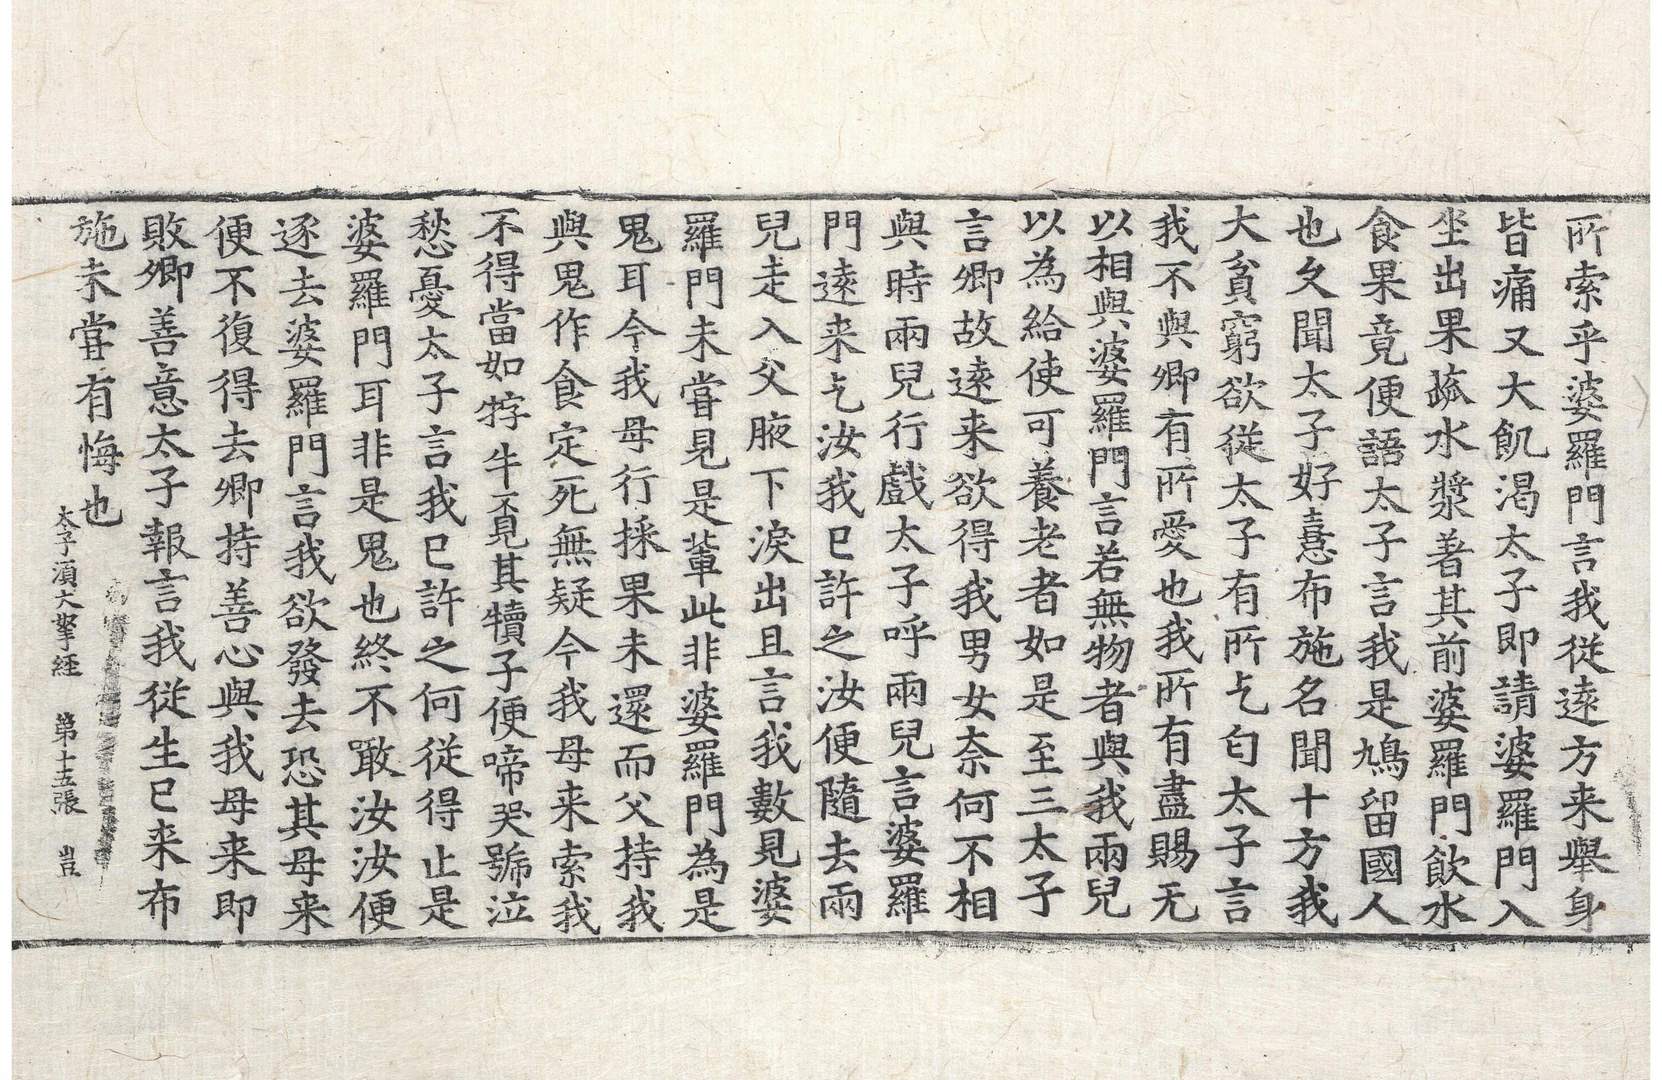 所索乎婆羅門言我従逺方来舉身
皆痛又大飢渴太子即請婆羅門入
坐出果蓏水漿著其前婆羅門飲水
食果竟便語太子言我是鳩留國人
也夂聞太子好憙布施名聞十方我
大貧窮欲従太子有所乞匄太子言
我不與卿有所愛也我所有盡賜无
以相與婆羅門言若無物者與我兩兒
以為給使可養老者如是至三太子
言卿故逺来欲得我男女奈何不相
與時兩兒行戲太子呼兩兒言婆羅
門逺来乞汝我已許之汝便隨去兩
兒走入父腋下淚出且言我數見婆
羅門未甞見是輩此非婆羅門為是
鬼耳今我母行採果未還而父持我
與鬼作食定死無疑今我母来索我
不得當如牸牛覓其犢子便啼哭號泣
愁憂太子言我已許之何従得止是
婆羅門耳非是鬼也終不噉汝汝便
逐去婆羅門言我欲發去恐其母来
便不復得去卿持善心與我母来即
敗卿善意太子報言我従生已来布
施未甞有悔也
太子湏大拏経 第十五張 豈